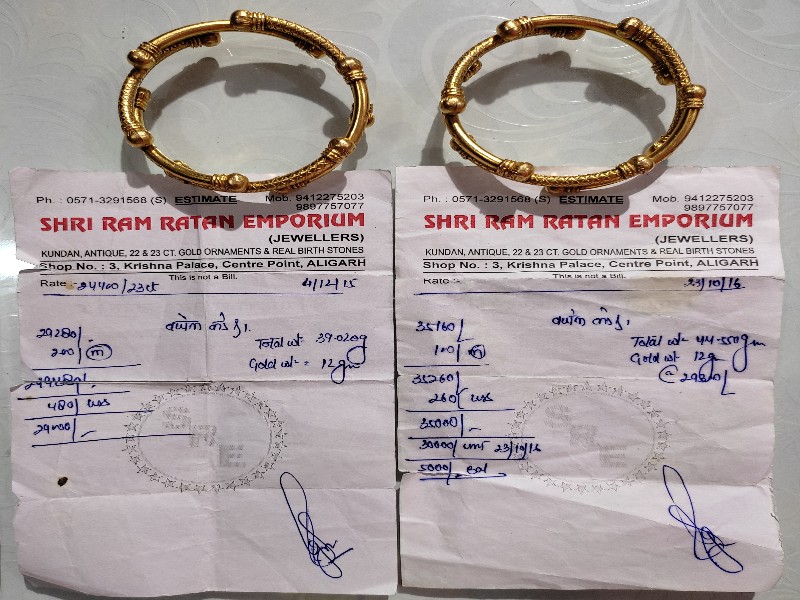 Ph. : 0571-3291568 (S) ESTIMATE Mob. 9412275203
9897757077
SHRI RAM RATAN EMPORIUM
(JEWELLERS)
KUNDAN, ANTIQUE, 22 & 23 CT. GOLD ORNAMENTS & REAL BIRTH STONES
Shop No. : 3, Krishna Palace, Centre Point, ALIGARH
This is not a Bill.
Rate :- 24400/23ct 4/12/15
29280/.
200/ m
Total wt- 39.020g
Gold wt = 12gm
29480/.
480/ less
29000/-
SRE
Ph. : 0571-3291568 (S) ESTIMATE Mob. 9412275203
9897757077
SHRI RAM RATAN EMPORIUM
(JEWELLERS)
KUNDAN, ANTIQUE, 22 & 23 CT. GOLD ORNAMENTS & REAL BIRTH STONES
Shop No. : 3, Krishna Palace, Centre Point, ALIGARH
This is not a Bill.
Rate :- 23/10/16
35160/
100/ m
Total wt- 44.550gm
Gold wt 12gm
35260/
260/ less
35000/-
30000/ 23/10/16
5000/
SRE